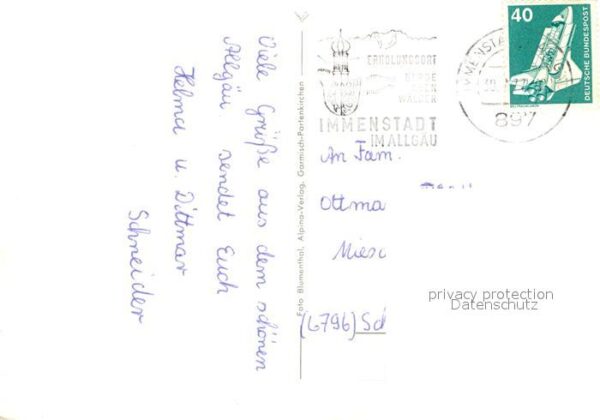 Viele Grüße aus dem schönen
Allgäu sendet Euch
Helma u. Dittmar
Schneider
Foto Blumenthal, Alpina-Verlag, Garmisch-Partenkirchen
ERHOLUNGSORT
BERGE
SEEN
WÄLDER
IMMENSTADT
IM ALLGÄU
IMMENSTA
897
40
DEUTSCHE BUNDESPOST
An Fam.
Ottma
Miesc
(6796) Sch
privacy protection
Datenschutz